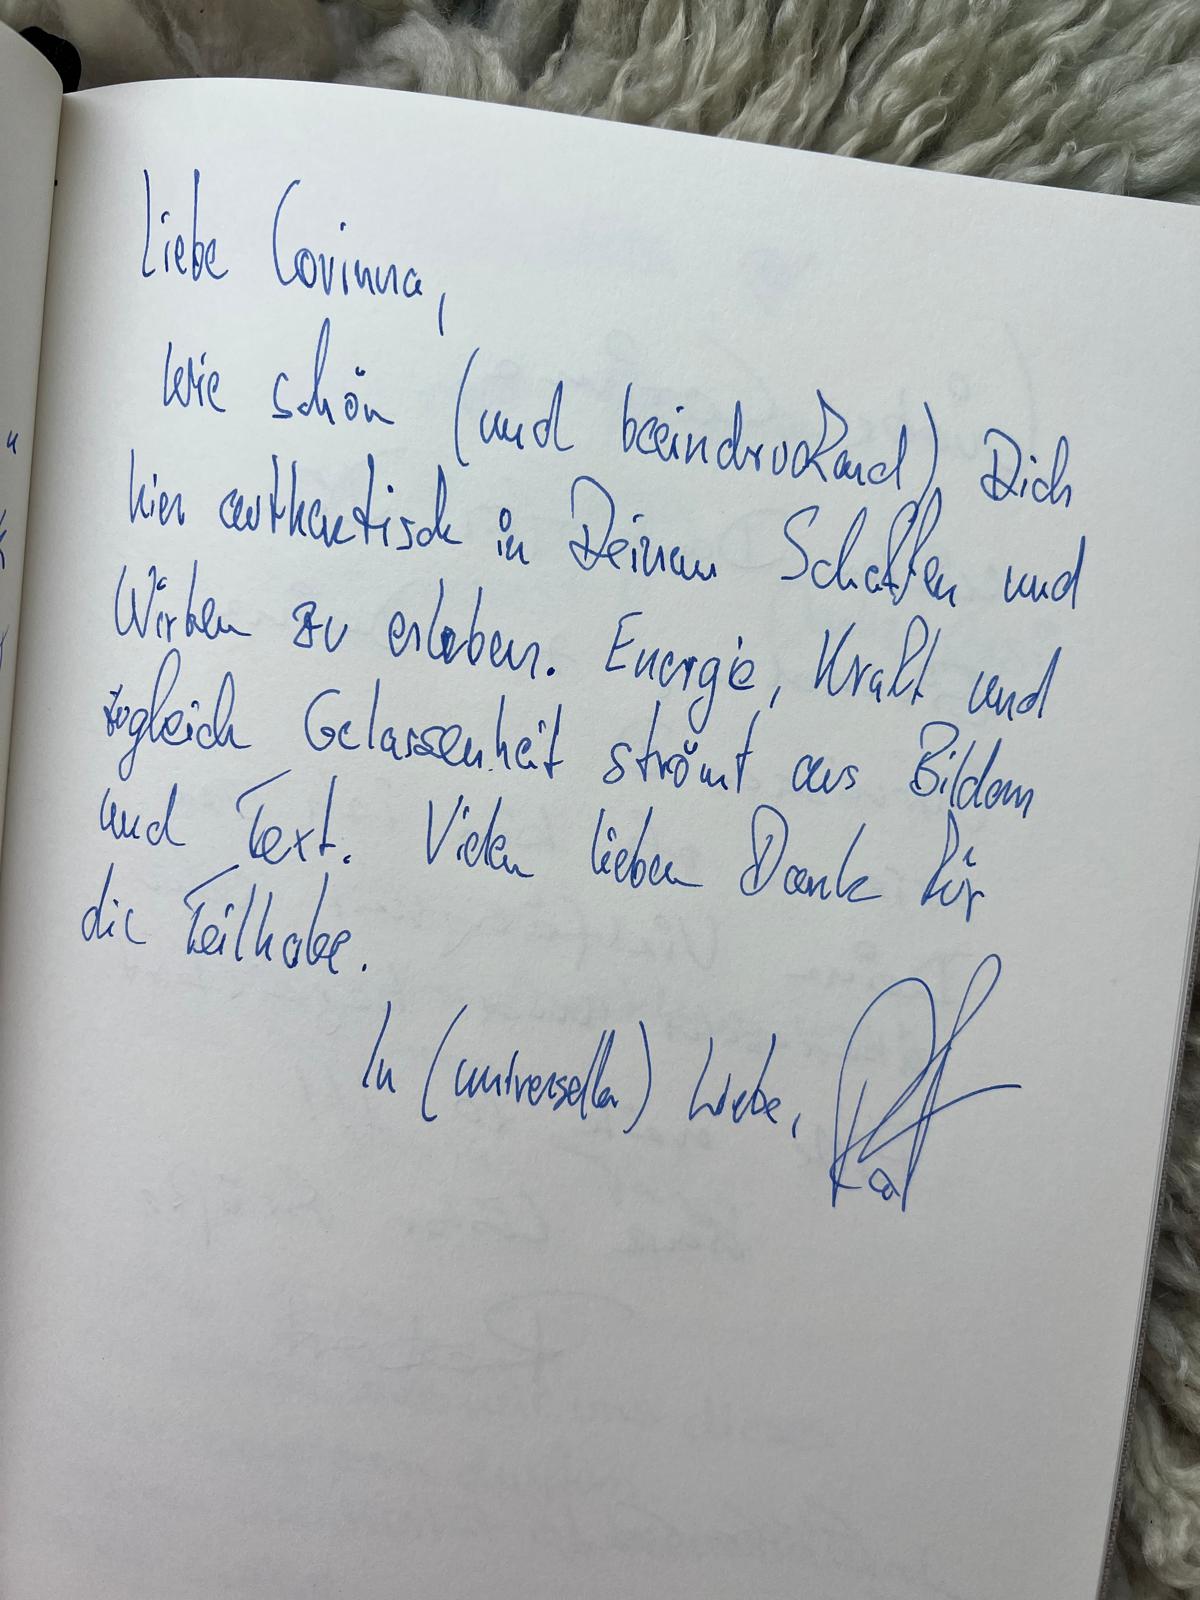 Liebe Corinna,
wie schön (und beeindruckend) Dich
hier authentisch in Deinem Schaffen und
Wirken zu erleben. Energie, Kraft und
zugleich Gelassenheit strömt aus Bildern
und Text. Vielen lieben Dank für
die Teilhabe.
In (universeller) Liebe,